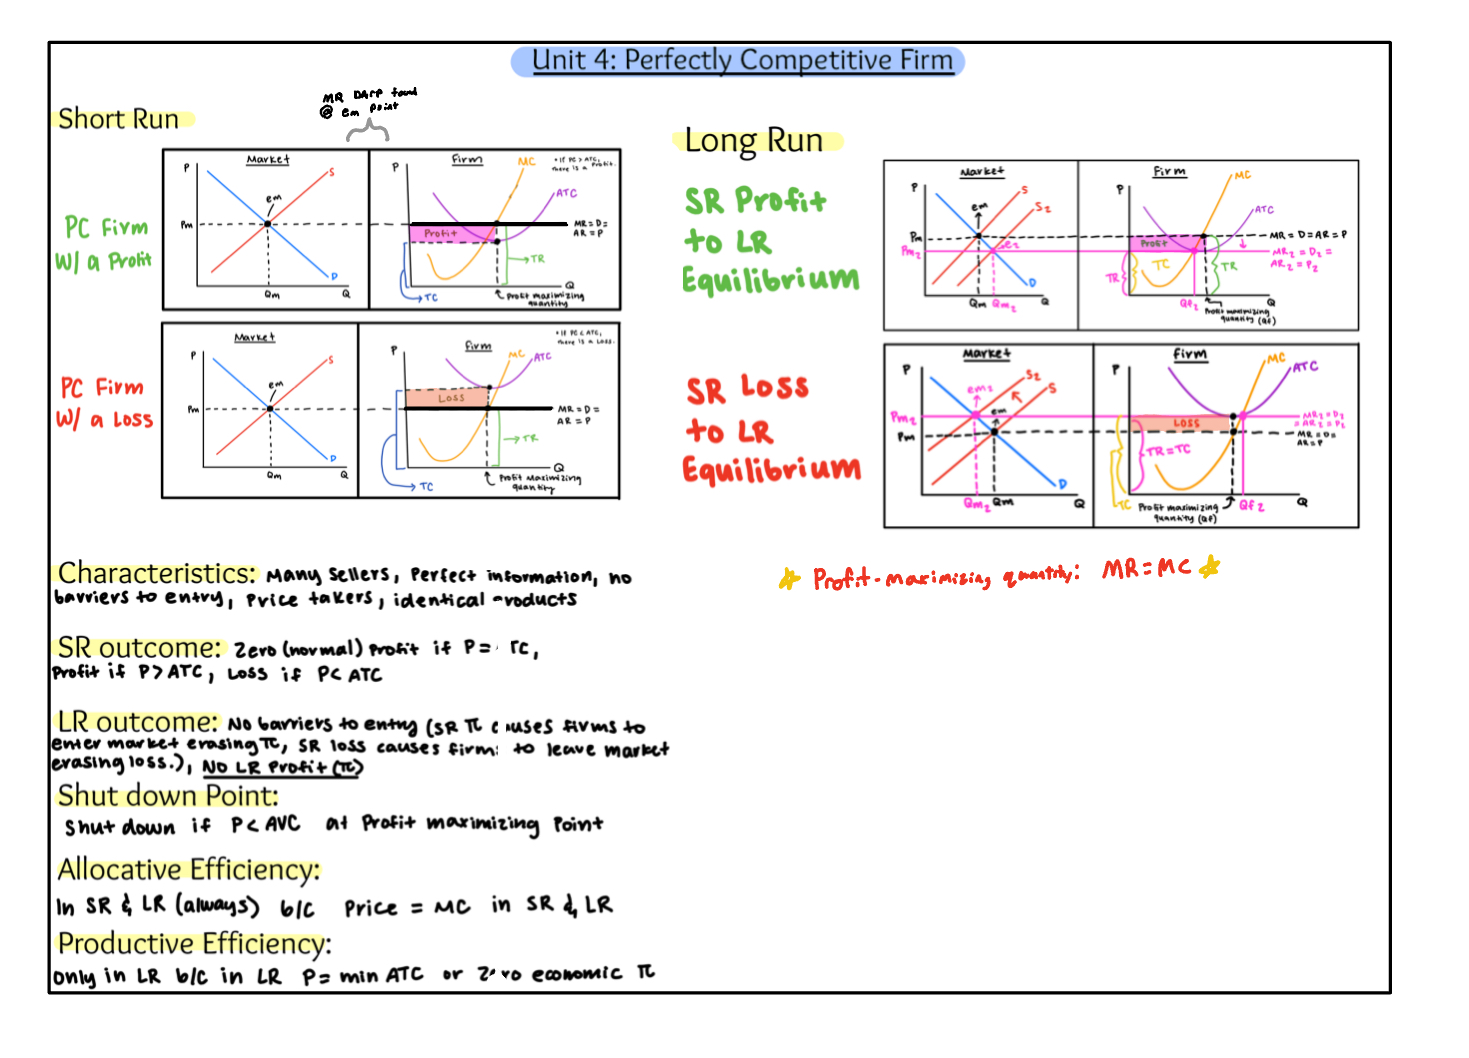 Unit 4: Perfectly Competitive Firm
MR DARP found
@ em point
Short Run
PC Firm
w/ a Profit
Market
P
S
em
Pm
D
Qm
Q
Firm
P
MC
* If PC > ATC,
there is a Profit.
ATC
MR = D =
AR = P
Profit
TR
TC
Q
Profit maximizing
quantity
PC Firm
w/ a Loss
Market
P
S
em
Pm
D
Qm
Q
Firm
P
MC
ATC
* If PC < ATC,
there is a Loss.
Loss
MR = D =
AR = P
TR
TC
Q
Profit Maximizing
quantity
Long Run
SR Profit
to LR
Equilibrium
Market
P
S
S2
em
e2
Pm
Pm2
D
Qm
Qm2
Q
Firm
P
MC
ATC
MR = D = AR = P
MR2 = D2 =
AR2 = P2
Profit
TC
TR
TR
Qf2
Q
Profit maximizing
quantity (Qf)
SR Loss
to LR
Equilibrium
Market
P
S2
S
em2
em
Pm2
Pm
D
Qm2
Qm
Q
Firm
P
MC
ATC
Loss
MR2 = D2
= AR2 = P2
MR = D =
AR = P
TR = TC
TC
Profit maximizing
quantity (Qf)
Qf2
Q
Profit-maximizing quantity: MR = MC
Characteristics: Many sellers, Perfect information, no
barriers to entry, Price takers, identical products
SR outcome: Zero (normal) Profit if P = TC,
Profit if P > ATC, Loss if P < ATC
LR outcome: No barriers to entry (SR π causes firms to
enter market erasing π, SR loss causes firms to leave market
erasing loss.), No LR Profit (π)
Shut down Point:
Shut down if P < AVC at Profit maximizing Point
Allocative Efficiency:
In SR & LR (always) b/c Price = MC in SR & LR
Productive Efficiency:
only in LR b/c in LR P = min ATC or Zero economic π